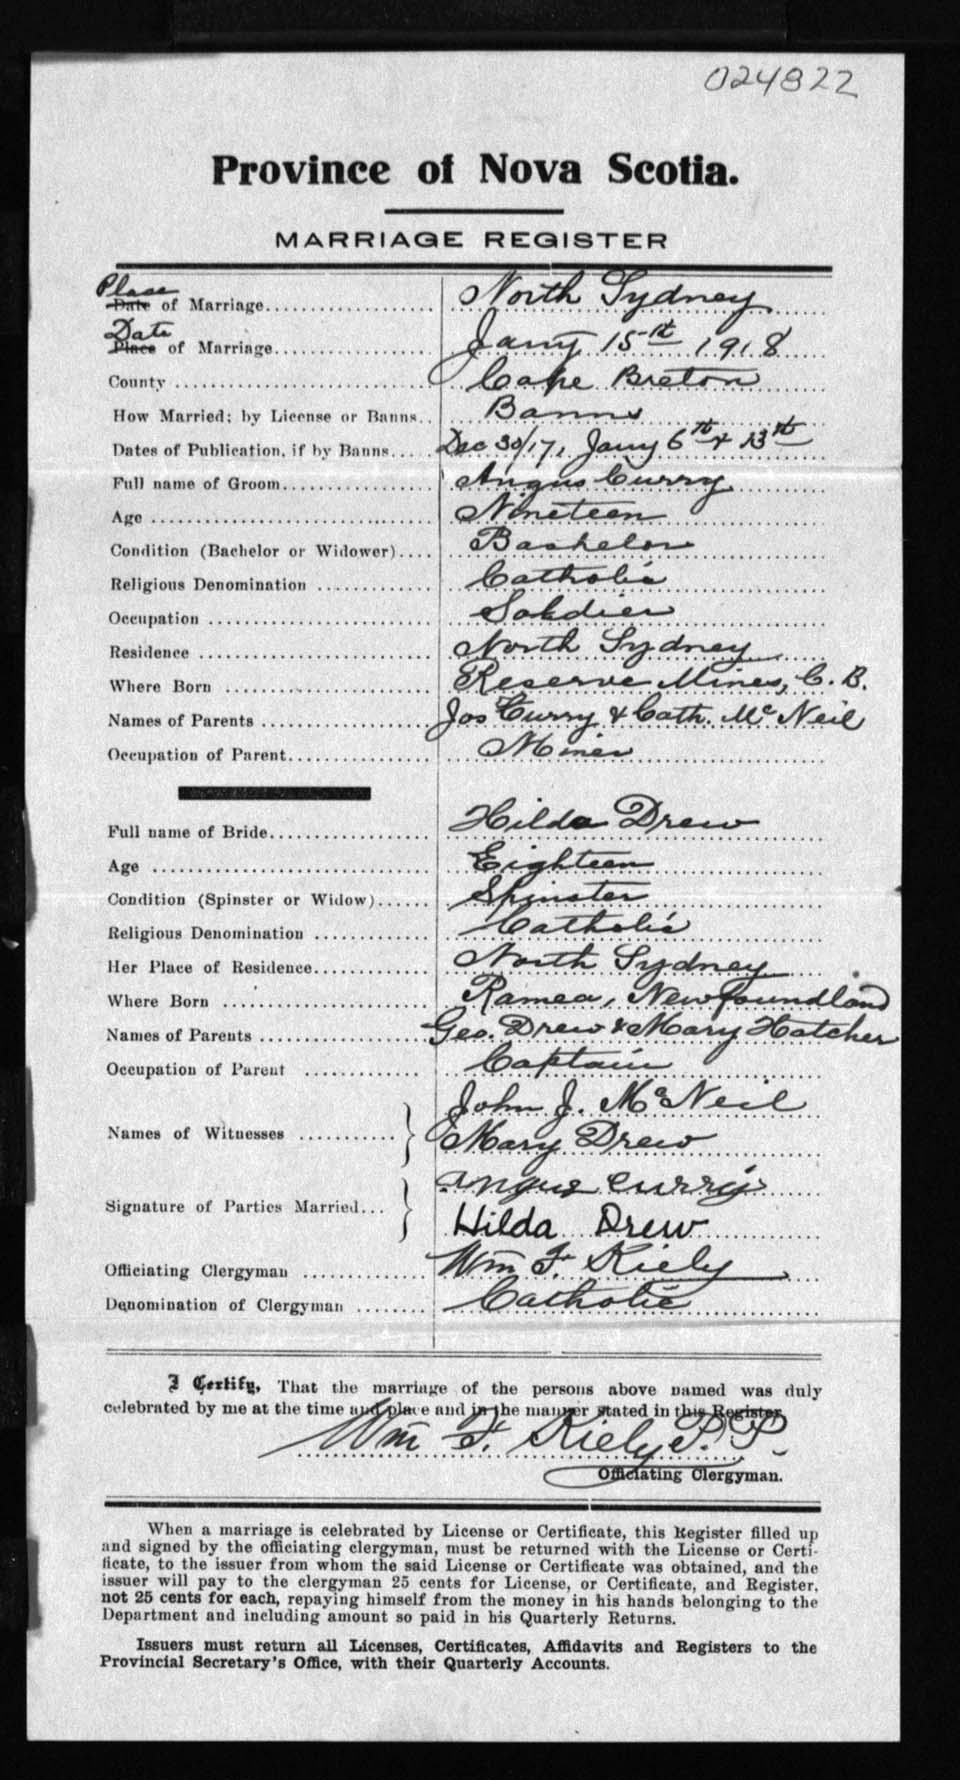 024822
Province of Nova Scotia.
MARRIAGE REGISTER
Place
Date of Marriage.................... North Sydney
Date
Place of Marriage.................... Jany 15th 1918
County .................... Cape Breton
How Married; by License or Banns.. Banns
Dates of Publication, if by Banns..... Dec 30/17, Jany 6th & 13th
Full name of Groom.................... Angus Curry
Age .................... Nineteen
Condition (Bachelor or Widower).... Bachelor
Religious Denomination ............. Catholic
Occupation .................... Soldier
Residence .................... North Sydney
Where Born .................... Reserve Mines, C. B.
Names of Parents .................... Jos Curry & Cath. McNeil
Occupation of Parent.................... Miner
Full name of Bride.................... Hilda Drew
Age .................... Eighteen
Condition (Spinster or Widow)...... Spinster
Religious Denomination ............. Catholic
Her Place of Residence.............. North Sydney
Where Born .................... Ramea, Newfoundland
Names of Parents .................... Geo. Drew & Mary Hatcher
Occupation of Parent ............. Captain
John J. McNeil
Names of Witnesses ...........
Mary Drew
Angus Curry
Signature of Parties Married...
Hilda Drew
Officiating Clergyman ............. Wm F. Kiely
Denomination of Clergyman ........ Catholic
I Certify, That the marriage of the persons above named was duly
celebrated by me at the time and place and in the manner stated in this Register.
Wm F. Kiely P. P.
Officiating Clergyman.
When a marriage is celebrated by License or Certificate, this Register filled up
and signed by the officiating clergyman, must be returned with the License or Certi-
ficate, to the issuer from whom the said License or Certificate was obtained, and the
issuer will pay to the clergyman 25 cents for License, or Certificate, and Register,
not 25 cents for each, repaying himself from the money in his hands belonging to the
Department and including amount so paid in his Quarterly Returns.
Issuers must return all Licenses, Certificates, Affidavits and Registers to the
Provincial Secretary's Office, with their Quarterly Accounts.